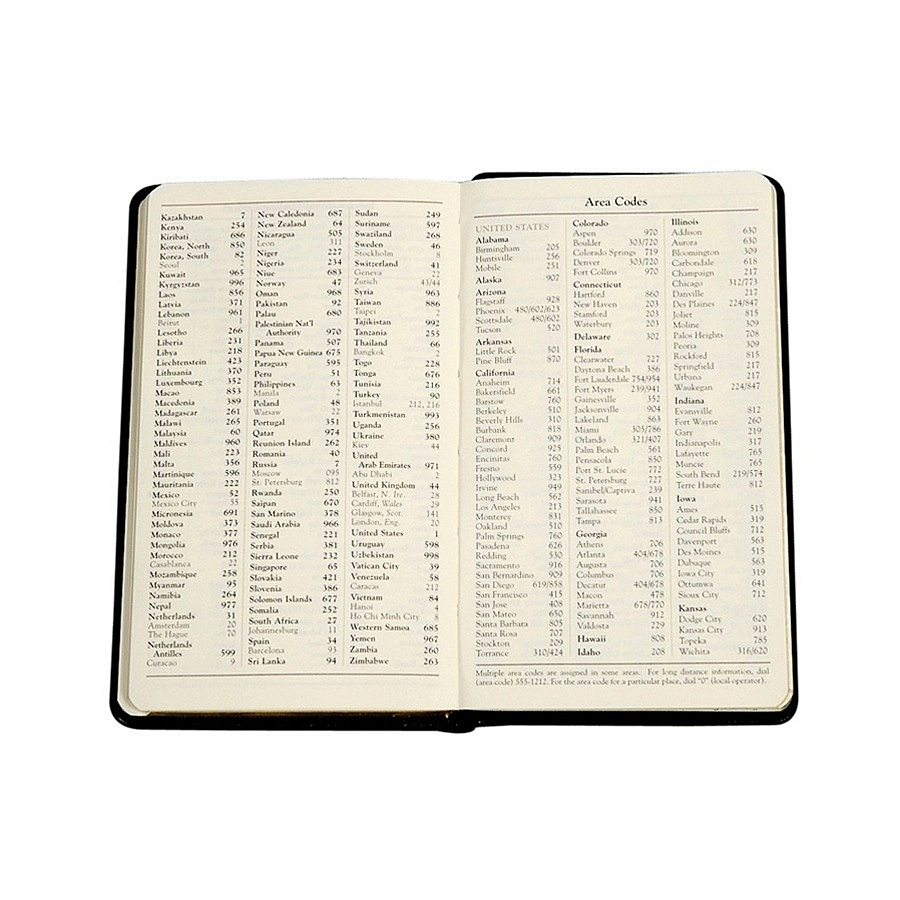 Kazakhstan 7
Kenya 254
Kiribati 686
Korea, North 850
Korea, South 82
Seoul 2
Kuwait 965
Kyrgyzstan 996
Laos 856
Latvia 371
Lebanon 961
Beirut 1
Lesotho 266
Liberia 231
Libya 218
Liechtenstein 423
Lithuania 370
Luxembourg 352
Macao 853
Macedonia 389
Madagascar 261
Malawi 265
Malaysia 60
Maldives 960
Mali 223
Malta 356
Martinique 596
Mauritania 222
Mexico 52
Mexico City 55
Micronesia 691
Moldova 373
Monaco 377
Mongolia 976
Morocco 212
Casablanca 22
Mozambique 258
Myanmar 95
Namibia 264
Nepal 977
Netherlands 31
Amsterdam 20
The Hague 70
Netherlands
Antilles 599
Curacao 9
New Caledonia 687
New Zealand 64
Nicaragua 505
Leon 311
Niger 227
Nigeria 234
Niue 683
Norway 47
Oman 968
Pakistan 92
Palau 680
Palestinian Nat'l
Authority 970
Panama 507
Papua New Guinea 675
Paraguay 595
Peru 51
Philippines 63
Manila 2
Poland 48
Warsaw 22
Portugal 351
Qatar 974
Reunion Island 262
Romania 40
Russia 7
Moscow 095
St. Petersburg 812
Rwanda 250
Saipan 670
San Marino 378
Saudi Arabia 966
Senegal 221
Serbia 381
Sierra Leone 232
Singapore 65
Slovakia 421
Slovenia 386
Solomon Islands 677
Somalia 252
South Africa 27
Johannesburg 11
Spain 34
Barcelona 93
Sri Lanka 94
Sudan 249
Suriname 597
Swaziland 268
Sweden 46
Stockholm 8
Switzerland 41
Geneva 22
Zurich 43/44
Syria 963
Taiwan 886
Taipei 2
Tajikistan 992
Tanzania 255
Thailand 66
Bangkok 2
Togo 228
Tonga 676
Tunisia 216
Turkey 90
Istanbul 212, 216
Turkmenistan 993
Uganda 256
Ukraine 380
Kiev 44
United
Arab Emirates 971
Abu Dhabi 2
United Kingdom 44
Belfast, N. Ire. 28
Cardiff, Wales 29
Glasgow, Scot. 141
London, Eng. 20
United States 1
Uruguay 598
Uzbekistan 998
Vatican City 39
Venezuela 58
Caracas 212
Vietnam 84
Hanoi 4
Ho Chi Minh City 8
Western Samoa 685
Yemen 967
Zambia 260
Zimbabwe 263
Area Codes
UNITED STATES
Alabama
Birmingham 205
Huntsville 256
Mobile 251
Alaska 907
Arizona
Flagstaff 928
Phoenix 480/602/623
Scottsdale 480/602
Tucson 520
Arkansas
Little Rock 501
Pine Bluff 870
California
Anaheim 714
Bakersfield 661
Barstow 760
Berkeley 510
Beverly Hills 310
Burbank 818
Claremont 909
Concord 925
Encinitas 760
Fresno 559
Hollywood 323
Irvine 949
Long Beach 562
Los Angeles 213
Monterey 831
Oakland 510
Palm Springs 760
Pasadena 626
Redding 530
Sacramento 916
San Bernardino 909
San Diego 619/858
San Francisco 415
San Jose 408
San Mateo 650
Santa Barbara 805
Santa Rosa 707
Stockton 209
Torrance 310/424
Colorado
Aspen 970
Boulder 303/720
Colorado Springs 719
Denver 303/720
Fort Collins 970
Connecticut
Hartford 860
New Haven 203
Stamford 203
Waterbury 203
Delaware 302
Florida
Clearwater 727
Daytona Beach 386
Fort Lauderdale 754/954
Fort Myers 239/941
Gainesville 352
Jacksonville 904
Lakeland 863
Miami 305/786
Orlando 321/407
Palm Beach 561
Pensacola 850
Port St. Lucie 772
St. Petersburg 727
Sanibel/Captiva 239
Sarasota 941
Tallahassee 850
Tampa 813
Georgia
Athens 706
Atlanta 404/678
Augusta 706
Columbus 706
Decatur 404/678
Macon 478
Marietta 678/770
Savannah 912
Valdosta 229
Hawaii 808
Idaho 208
Illinois
Addison 630
Aurora 630
Bloomington 309
Carbondale 618
Champaign 217
Chicago 312/773
Danville 217
Des Plaines 224/847
Joliet 815
Moline 309
Palos Heights 708
Peoria 309
Rockford 815
Springfield 217
Urbana 217
Waukegan 224/847
Indiana
Evansville 812
Fort Wayne 260
Gary 219
Indianapolis 317
Lafayette 765
Muncie 765
South Bend 219/574
Terre Haute 812
Iowa
Ames 515
Cedar Rapids 319
Council Bluffs 712
Davenport 563
Des Moines 515
Dubuque 563
Iowa City 319
Ottumwa 641
Sioux City 712
Kansas
Dodge City 620
Kansas City 913
Topeka 785
Wichita 316/620
Multiple area codes are assigned in some areas. For long distance information, dial
(area code) 555-1212. For the area code for a particular place, dial "0" (local operator).